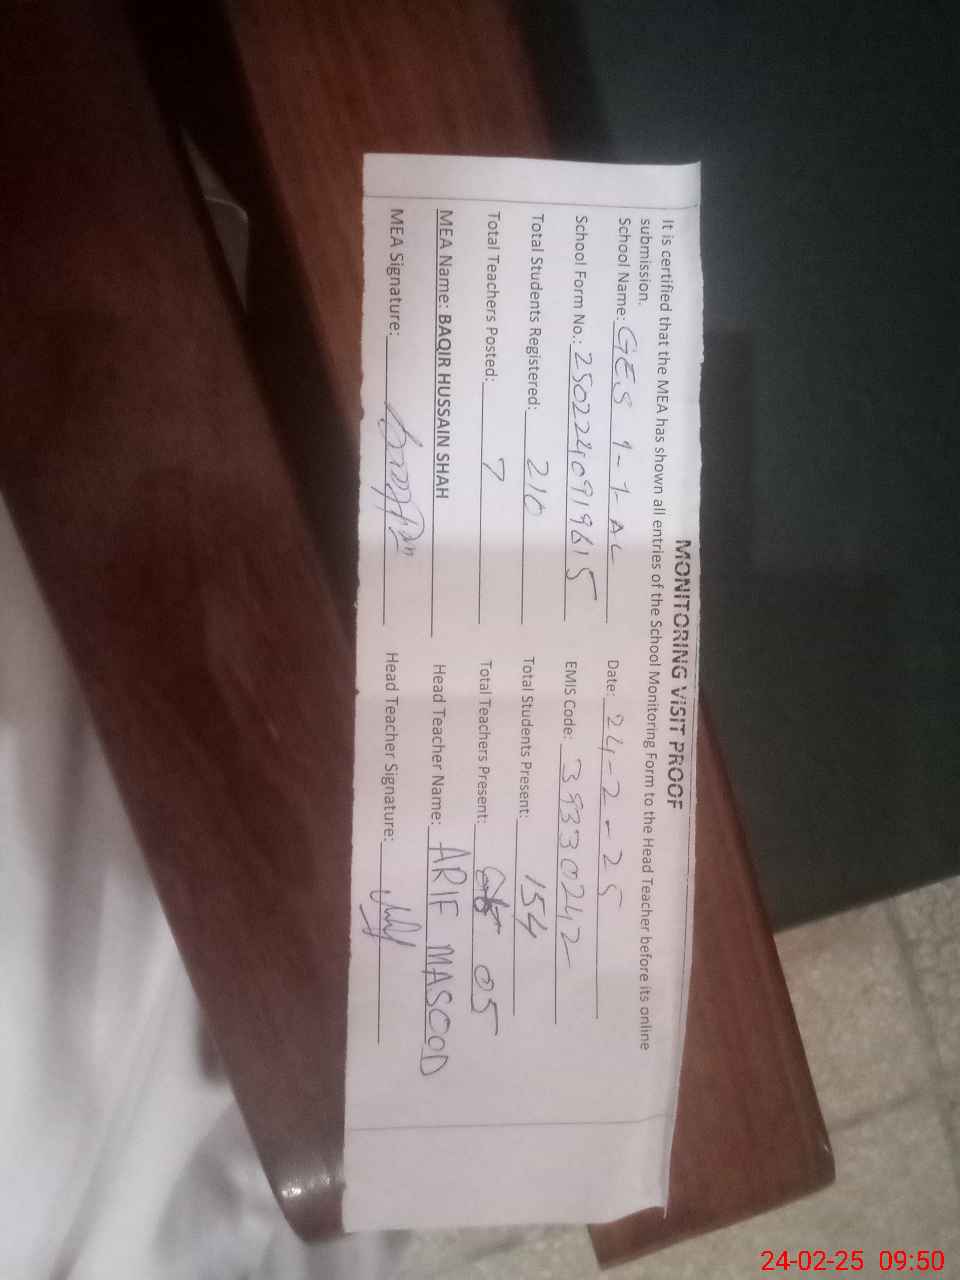 MONITORING VISIT PROOF
It is certified that the MEA has shown all entries of the School Monitoring Form to the Head Teacher before its online
submission.
School Name: GES 1-1-AL Date: 24-2-25
School Form No.: 2502240919615 EMIS Code: 39330242
Total Students Registered: 210 Total Students Present: 154
Total Teachers Posted: 7 Total Teachers Present: 05
MEA Name: BAQIR HUSSAIN SHAH Head Teacher Name: ARIF MASOOD
MEA Signature: Head Teacher Signature:
24-02-25 09:50